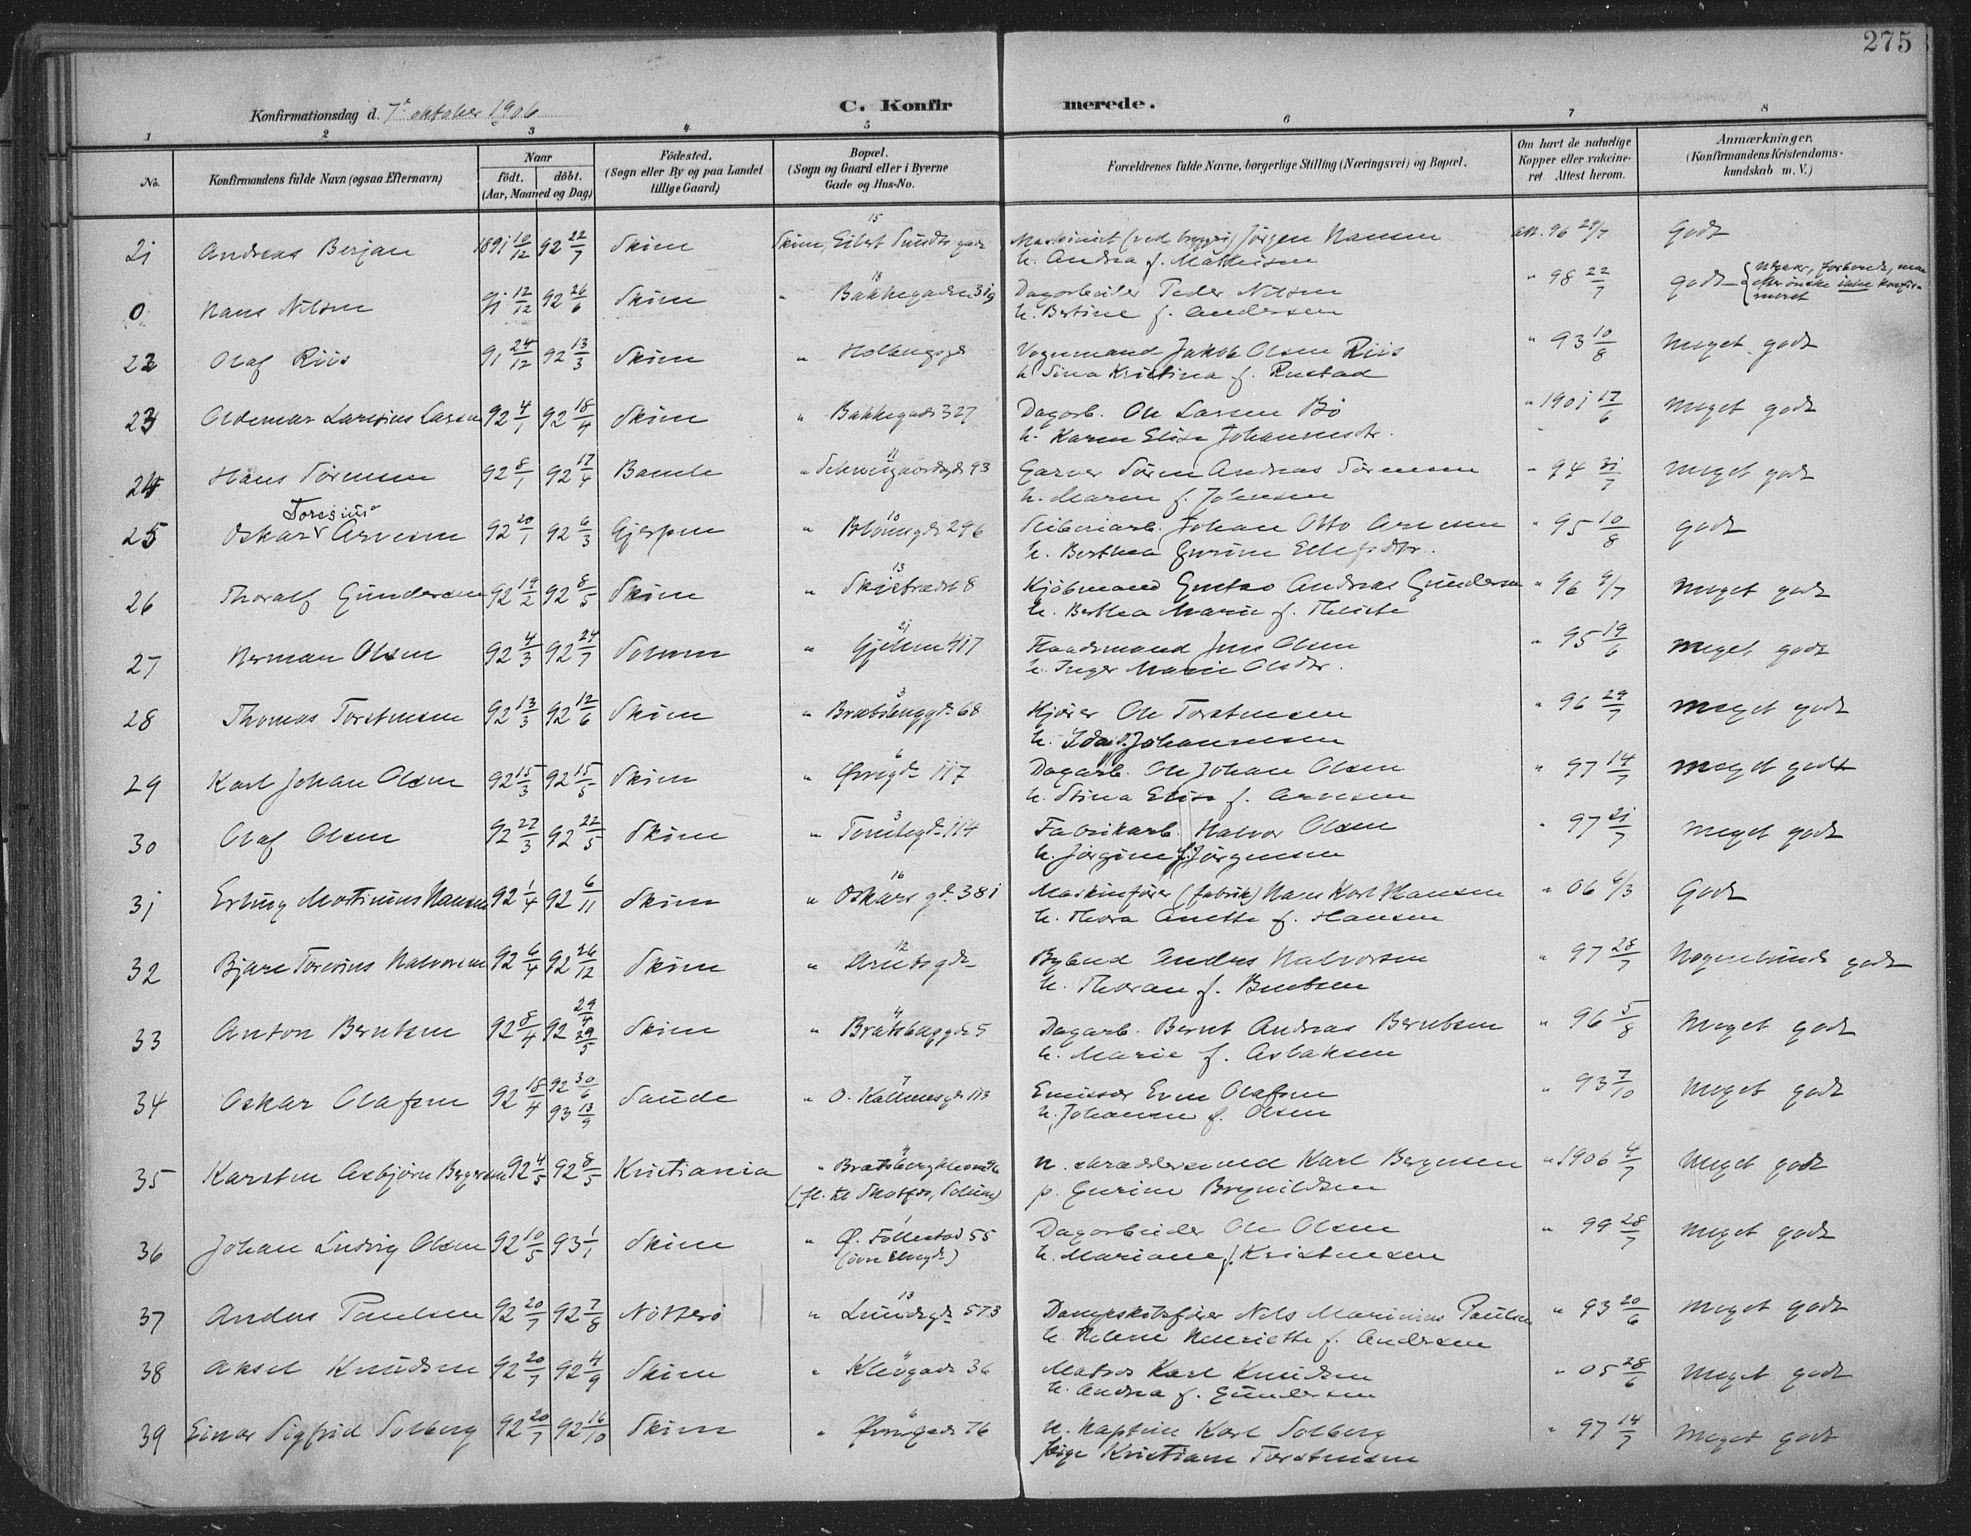 275
Konfirmationsdag d. 7de oktober 1906
C. Konfirmerede.
1 2 3 4 5 6 7 8
No.
Konfirmandens fulde Navn (ogsaa Efternavn)
Naar
Födt. döbt.
(Aar, Maaned og Dag)
Födested.
(Sogn eller By og paa Landet tillige Gaard)
Bopæl.
(Sogn og Gaard eller i Byerne Gade og Hus-No.
Forældrenes fulde Navne, borgerlige Stilling (Næringsvei) og Bopæl.
Om havt de naturlige Kopper eller vaccineret Attest herom.
Anmærkninger.
(Konfirmandens Kristendomskundskab m. V.)
21 Andreas Berjan 1891 10/12 92 22/7 Skien Skien, Eilert Sundts gade 15 Maskinist Jørgen Hansen att. 96 29/7 godt
h. Andrea f. Mathisen
0 Hans Nilsen 91 12/12 92 26/6 Skien " Bakkegaden 319 18 Dagarbeider Peder Nilsen " 98 22/7 godt
h. Bertine f. Andersen
22 Olaf Riis 91 24/12 92 13/3 Skien " Holbergsgd Vognmand Jakob Olsen Riis " 93 10/8 Meget godt
h. Sina Kristina f. Rustad
23 Oldemar Laresius Larsen 92 4/1 92 18/4 Skien " Bakkegade 327 Dagarb. Ole Larsen Bø " 1901 17/6 Meget godt
h. Karen Elise Johannesdr.
24 Hans Sørensen 92 8/1 92 17/4 Bamle " Schweigaardsgd 93 11 Garver Søren Andreas Sørensen " 94 31/7 Meget godt
h. Maren f. Johnsen
25 Oskar Toresius Arvesen 92 20/1 92 6/3 Gjerpen " 296 10 Johan Otto Arvesen " 95 10/8 godt
h. Berthea Gurine Ellefsdtr.
26 Thoralf Gundersen 92 19/2 92 8/5 Skien " Skistredet 8 13 Kjøbmand Gustav Andreas Gundersen " 96 9/7 Meget godt
h. Berthea Marie f. Thliste
27 Herman Olsen 92 4/3 92 24/7 Solum " Gjelsen 417 21 Jens Olsen " 95 19/6 Meget godt
h. Inger Marie Olsdtr.
28 Thomas Torstensen 92 13/3 92 12/6 Skien " Bratsberggd. 68 3 Kjører Ole Torstensen " 96 29/7 Meget godt
h. Ida f. Johannesen
29 Karl Johan Olsen 92 15/3 92 15/5 Skien " Øvregd. 117 6 Dagarb. Ole Johan Olsen " 97 14/7 Meget godt
h. Stina Elise f. Arvesen
30 Olaf Olsen 92 22/3 92 22/5 Skien " Tomtegd. 114 3 Fabrikarb. Halvor Olsen " 97 21/7 Meget godt
h. Jørgine f. Jørgensen
31 Erling Martinius Hansen 92 1/4 92 6/11 Skien " Oskars gd. 381 16 Maskinfører (fabrik) Hans Karl Hansen " 06 6/3 Godt
h. Thora Anette f. Hansen
32 Bjarne Toresius Halvorsen 92 6/4 92 26/12 Skien " Arntsgd. 12 Bybud Anders Halvorsen " 97 28/7 Nogenlunde godt
h. Thoran f. Berntsen
33 Anton Berntsen 92 8/4 92 29/4 29/5 Skien " Bratsberggd 5 4 Dagarb. Bernt Andreas Berntsen " 96 5/8 Meget godt
h. Marie f. Aslaksen
34 Oskar Olafsen 92 18/4 92 30/6 93 13/9 Saude " O. Kallmesgd. 113 7 Emissær Even Olafsen " 93 7/10 Meget godt
h. Johanne f. Olsen
35 Karsten Asbjørn Bergersen 92 4/5 92 8/5 Kristiania " 4 (fl. til Skotfos, Solum) u. skræddersvend Karl Bergersen " 1906 4/7 Meget godt
p. Gurine Brynildsen
36 Johan Ludvig Olsen 92 10/5 93 1/1 Skien " Ø. Føllestad 55 1 Dagarbeider Ole Olsen " 99 28/7 Meget godt
h. Mariane f. Kristensen
37 Anders Paulsen 92 20/7 92 7/8 Nötterö " Lundegd. 573 13 Dampskibsfører Nils Marinius Paulsen " 93 20/6 Meget godt
h. Helene Henriette f. Andersen
38 Aksel Knudsen 92 20/7 92 4/9 Skien " Klevgade 36 Matros Karl Knudsen " 05 28/6 Meget godt
h. Andrea f. Gundersen
39 Einar Sigfrid Solberg 92 20/7 92 16/10 Skien " Øvregade 76 6 u. Kaptein Karl Solberg " 97 14/7 Meget godt
pige Kristiane Torstensen